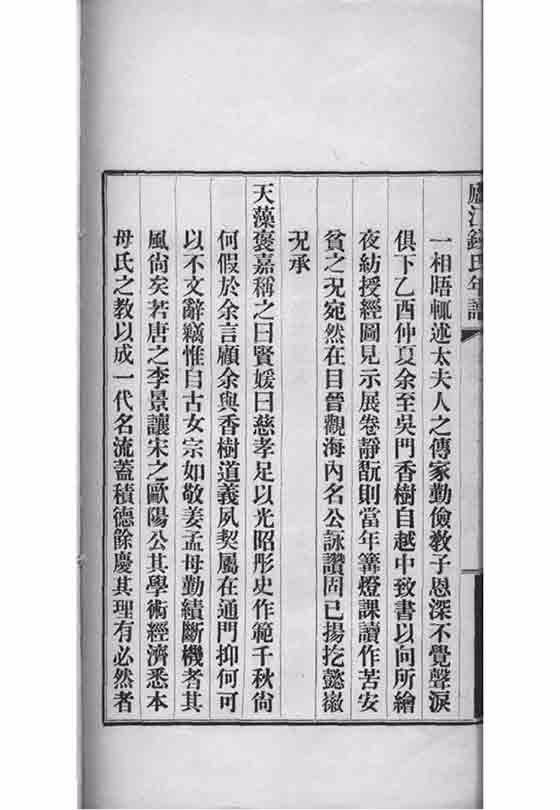 廬江錢氏年譜
一相晤輒述太夫人之傳家勤儉教子恩深不覺聲淚
俱下乙酉仲夏余至吳門香樹自越中致書以向所繪
夜紡授經圖見示展卷靜翫則當年篝燈課讀作苦安
貧之况宛然在目晉觀海內名公詠讚固已揚扢懿徽
况承
天藻褒嘉稱之曰賢媛曰慈孝足以光昭彤史作範千秋尙
何假於余言顧余與香樹道義夙契屬在通門抑何可
以不文辭竊惟自古女宗如敬姜孟母勤績斷機者其
風尙矣若唐之李景讓宋之歐陽公其學術經濟悉本
母氏之教以成一代名流蓋積德餘慶其理有必然者